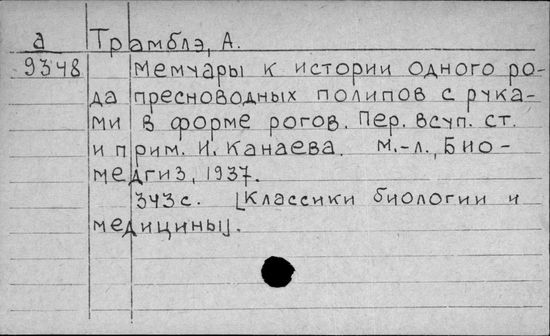 а Трамблэ, А.
9348 Мемуары к истории одного ро-
да пресноводных полипов с рука-
ми в форме рогов. Пер. вступ. ст.
и прим. И. Канаева. М.-Л., Био-
медгиз, 1937.
343 с. [Классики биологии и
медицины].